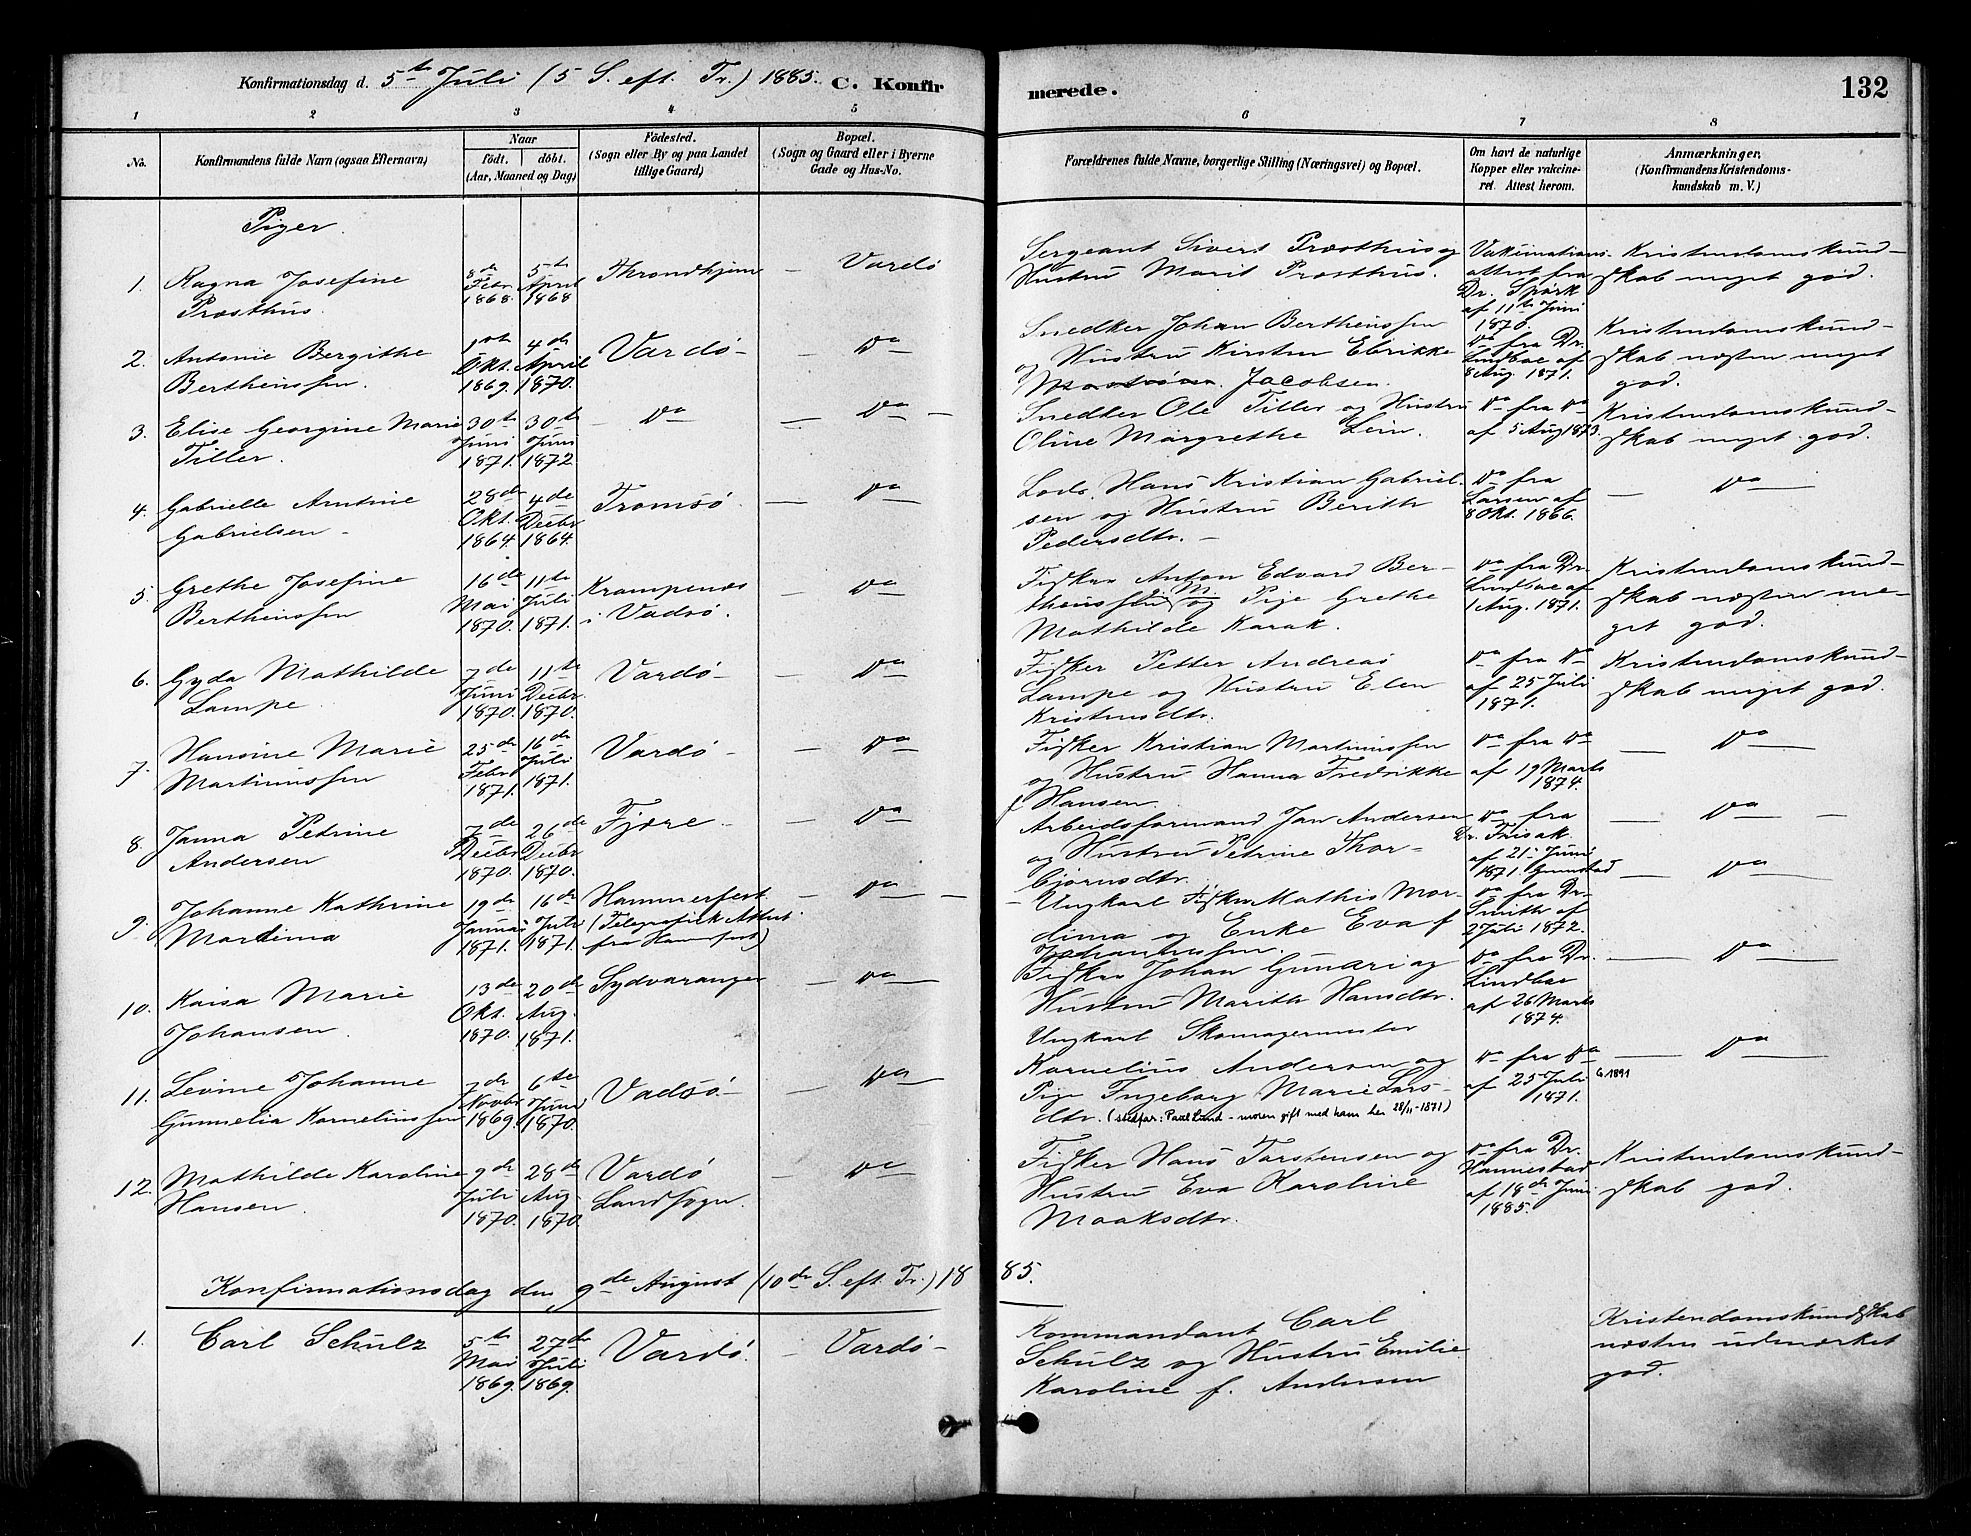 Konfirmationsdag d. 5te Juli (5 S. eft. Tr.) 1885. C. Konfirmerede. 132
1 2 3 4 5 6 7 8
No.
Konfirmandens fulde Navn (ogsaa Efternavn)
Naar
født. døbt.
(Aar, Maaned og Dag)
Fødested.
(Sogn eller By og paa Landet
tillige Gaard)
Bopæl.
(Sogn og Gaard eller i Byerne
Gade og Hus-No.
Forældrenes fulde Navne, borgerlige Stilling (Næringsvei) og Bopæl.
Om havt de naturlige
Kopper eller vakcine-
ret. Attest herom.
Anmærkninger.
(Konfirmandens Kristendoms-
kundskab m. V.)
Piger.
1. Ragna Josefine
Præsthus.
8de
Febr.
1868.
5te
April
1868
Throndhjem
— Vardø
Sergeant Sivert Præsthus og
Hustru Marit Præsthus.
Vakcinations-
attest fra
Dr. Spørk
af 11te Juni
1870.
Kristendomskund-
skab meget god.
2. Antonie Bergithe
Berthenssen.
1ste
Okt.
1869.
4de
April
1870.
Vardø-
— Do
Snedker Johan Berthenssen
og Hustru Kirsten Elrikke
Jacobsen.
Do fra Dr.
Lindboe af
8 Aug. 1871.
Kristendomskund-
skab næsten meget
god.
3. Elise Georgine Marie
Tiller.
30te
Juni
1871.
30te
Juni
1872
— Do
— Do —
Snedker Ole Tiller og Hustru
Oline Margrethe Lein.
Do fra Do
af 5 Aug 1873.
Kristendomskund-
skab meget god.
4. Gabrielle Arntine
Gabrielsen -
28de
Okt.
1864.
4de
Decbr
1864.
Tromsø
— Do
Lods. Hans Kristian Gabriel-
sen og Hustru Berith
Pedersdtr. -
Do fra
Larsen af
8 Okt. 1866.
— Do —
5. Grethe Josefine
Berthenssen
16de
Mai
1870.
11te
Juli
1871.
Krampenæs
i Vadsø.
— Do
Fisker Anton Edvard Ber-
thenssen og Pige Grethe
Mathilde Karak.
Do fra Dr.
Lindboe af
1 Aug. 1871.
Kristendomskund-
skab næsten me-
get god.
6. Gyda Mathilde
Lampe
7de
Juni
1870.
11te
Decbr.
1870.
Vardø-
— Do
Fisker Petter Andreas
Lampe og Hustru Elen
Kristensdtr.
Do fra Do
af 25 Juli
1871.
Kristendomskund-
skab meget god.
7. Hansine Marie
Martinussen
25de
Febr
1871.
16de
Juli
1871.
Vardø -
— Do
Fisker Kristian Martinussen
og Hustru Hanna Fredrikke
f Hansen.
Do fra Do
af 19 Marts
1874.
— Do —
8. Janna Petrine
Andersen
7de
Decbr
1870.
26de
Decbr
1870.
Fjære-
— Do
Arbeidsformand Jan Andersen
og Hustru Petrine Thor-
bjørnsdtr.
Do fra
Dr. Frisak
af 21 Juni
1871. Grimstad
— Do —
9. Johanne Kathrine
Mardima
19de
Januar
1871.
16de
Juli
1871.
Hammerfest
(Telegrafisk Attest
fra Hamfest)
— Do —
Ungkarl Fisker Mathis Mor-
dima og Enke Eva f
Johannessen.
Do fra Dr.
Smith af
2 Juli 1872.
— Do —
10. Kaisa Marie
Johansen.
13de
Okt.
1870.
20de
Aug.
1871.
Sydvaranger
— Do
Fisker Johan Gunari og
Hustru Marith Hansdtr.
Do fra Dr.
Lindboe
af 26 Marts
1874.
— Do —
11. Levine Johanne
Gunnelia Korneliussen
7de
Novbr
1869.
6te
Juni
1870.
Vadsø-
— Do
Ungkarl Skomagermester
Kornelius Andersen og
Pige Ingeborg Marie Lars-
dtr. (stedfar: Paul Lund - moren gift med ham her 28/11-1871)
Do fra Do
af 25 Juli
1871.
G. 1891
— Do —
12. Mathilde Karoline
Hansen.
9de
Juli
1870.
28de
Aug.
1870.
Vardø
Landsogn.
— Do
Fisker Hans Torstensen og
Hustru Eva Karoline
Maaksdtr.
Do fra Dr.
Hannestad
af 18de Juni
1885.
Kristendomskund-
skab god.
Konfirmationsdag den 9de August (10de S. eft. Tr.) 1885.
1. Carl Schulz
5te
Mai
1869.
27de
Juli
1869.
Vardø.
— Vardø-
Kommandant Carl
Schulz og Hustru Emilie
Karoline f. Andersen
Kristendomskundskab
næsten udmærket
god.